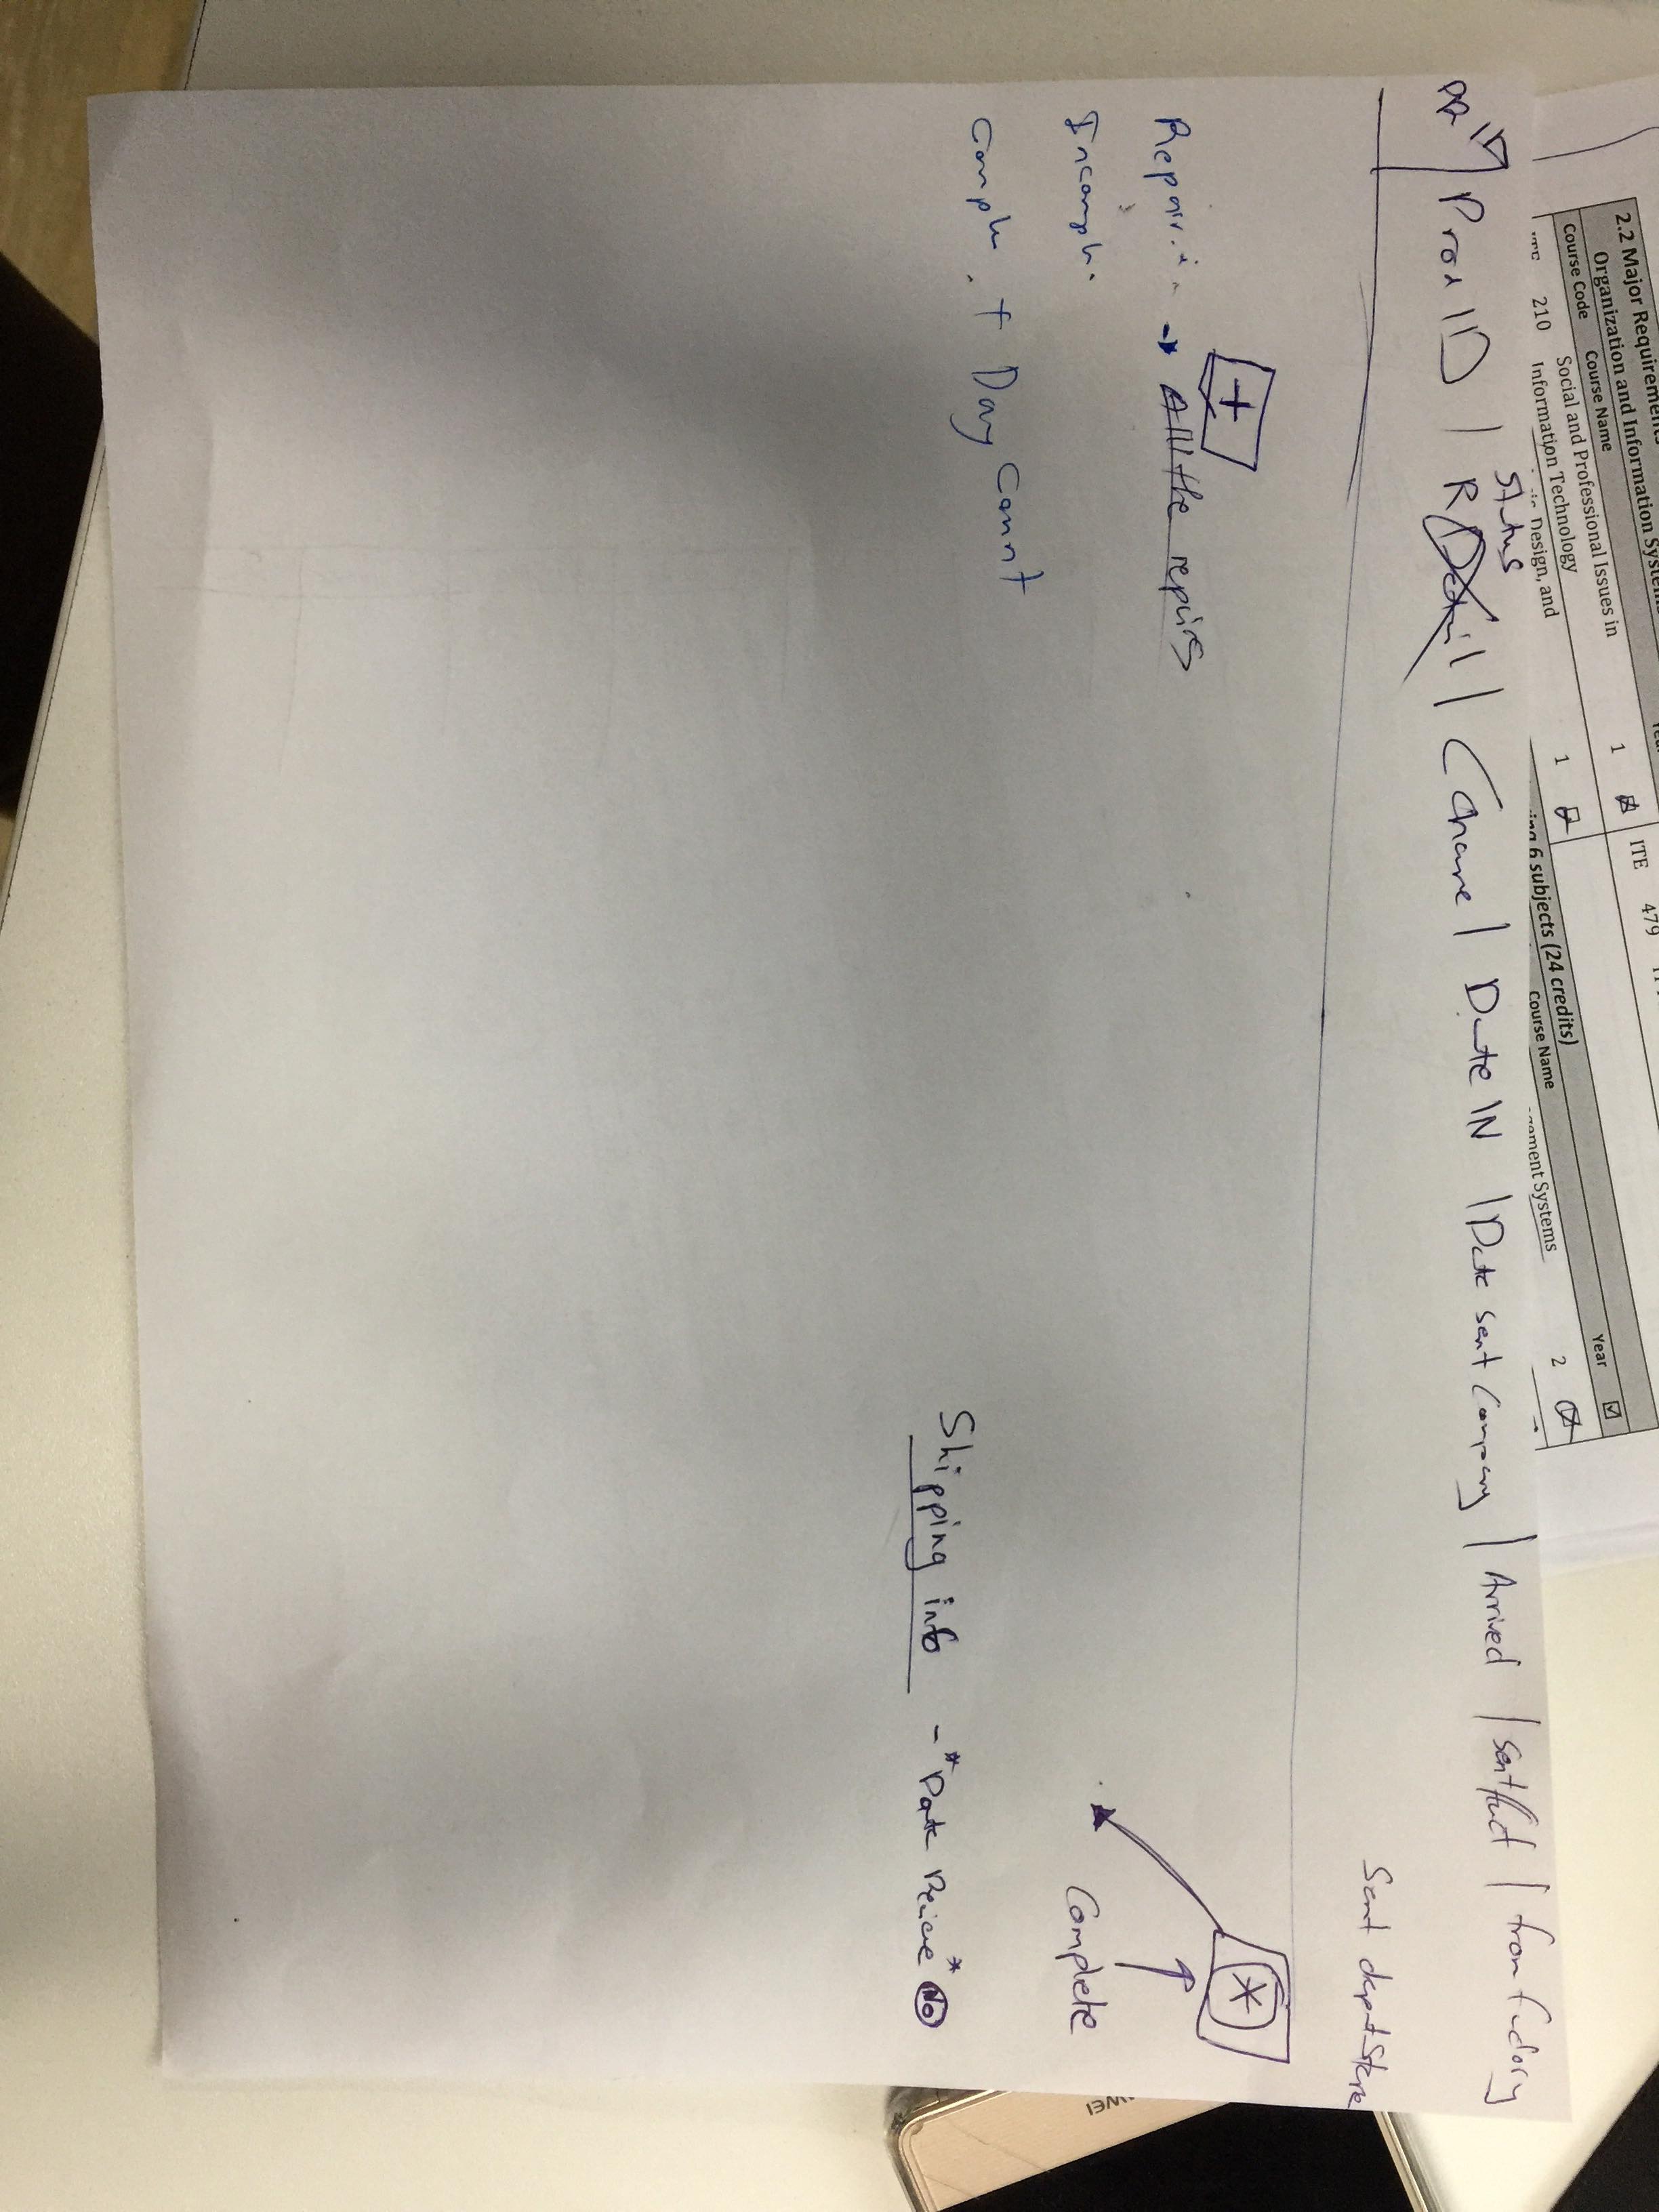 2.2 Major Requirements
Organization and Information Systems
Course Code Course Name
Social and Professional Issues in 1
210 Information Technology 1
Design, and
ITE 479
6 subjects (24 credits)
Course Name Year
ement Systems 2
Status
ID | Prod ID | R Detail | Cname | Date IN | Date sent company | Arrived | sent fact | from factory
sent depart store
+
*
Repairi → All the repairs
Incompl.
Complete
Compl. + Day Count
Shipping info - *Date Recieve* No